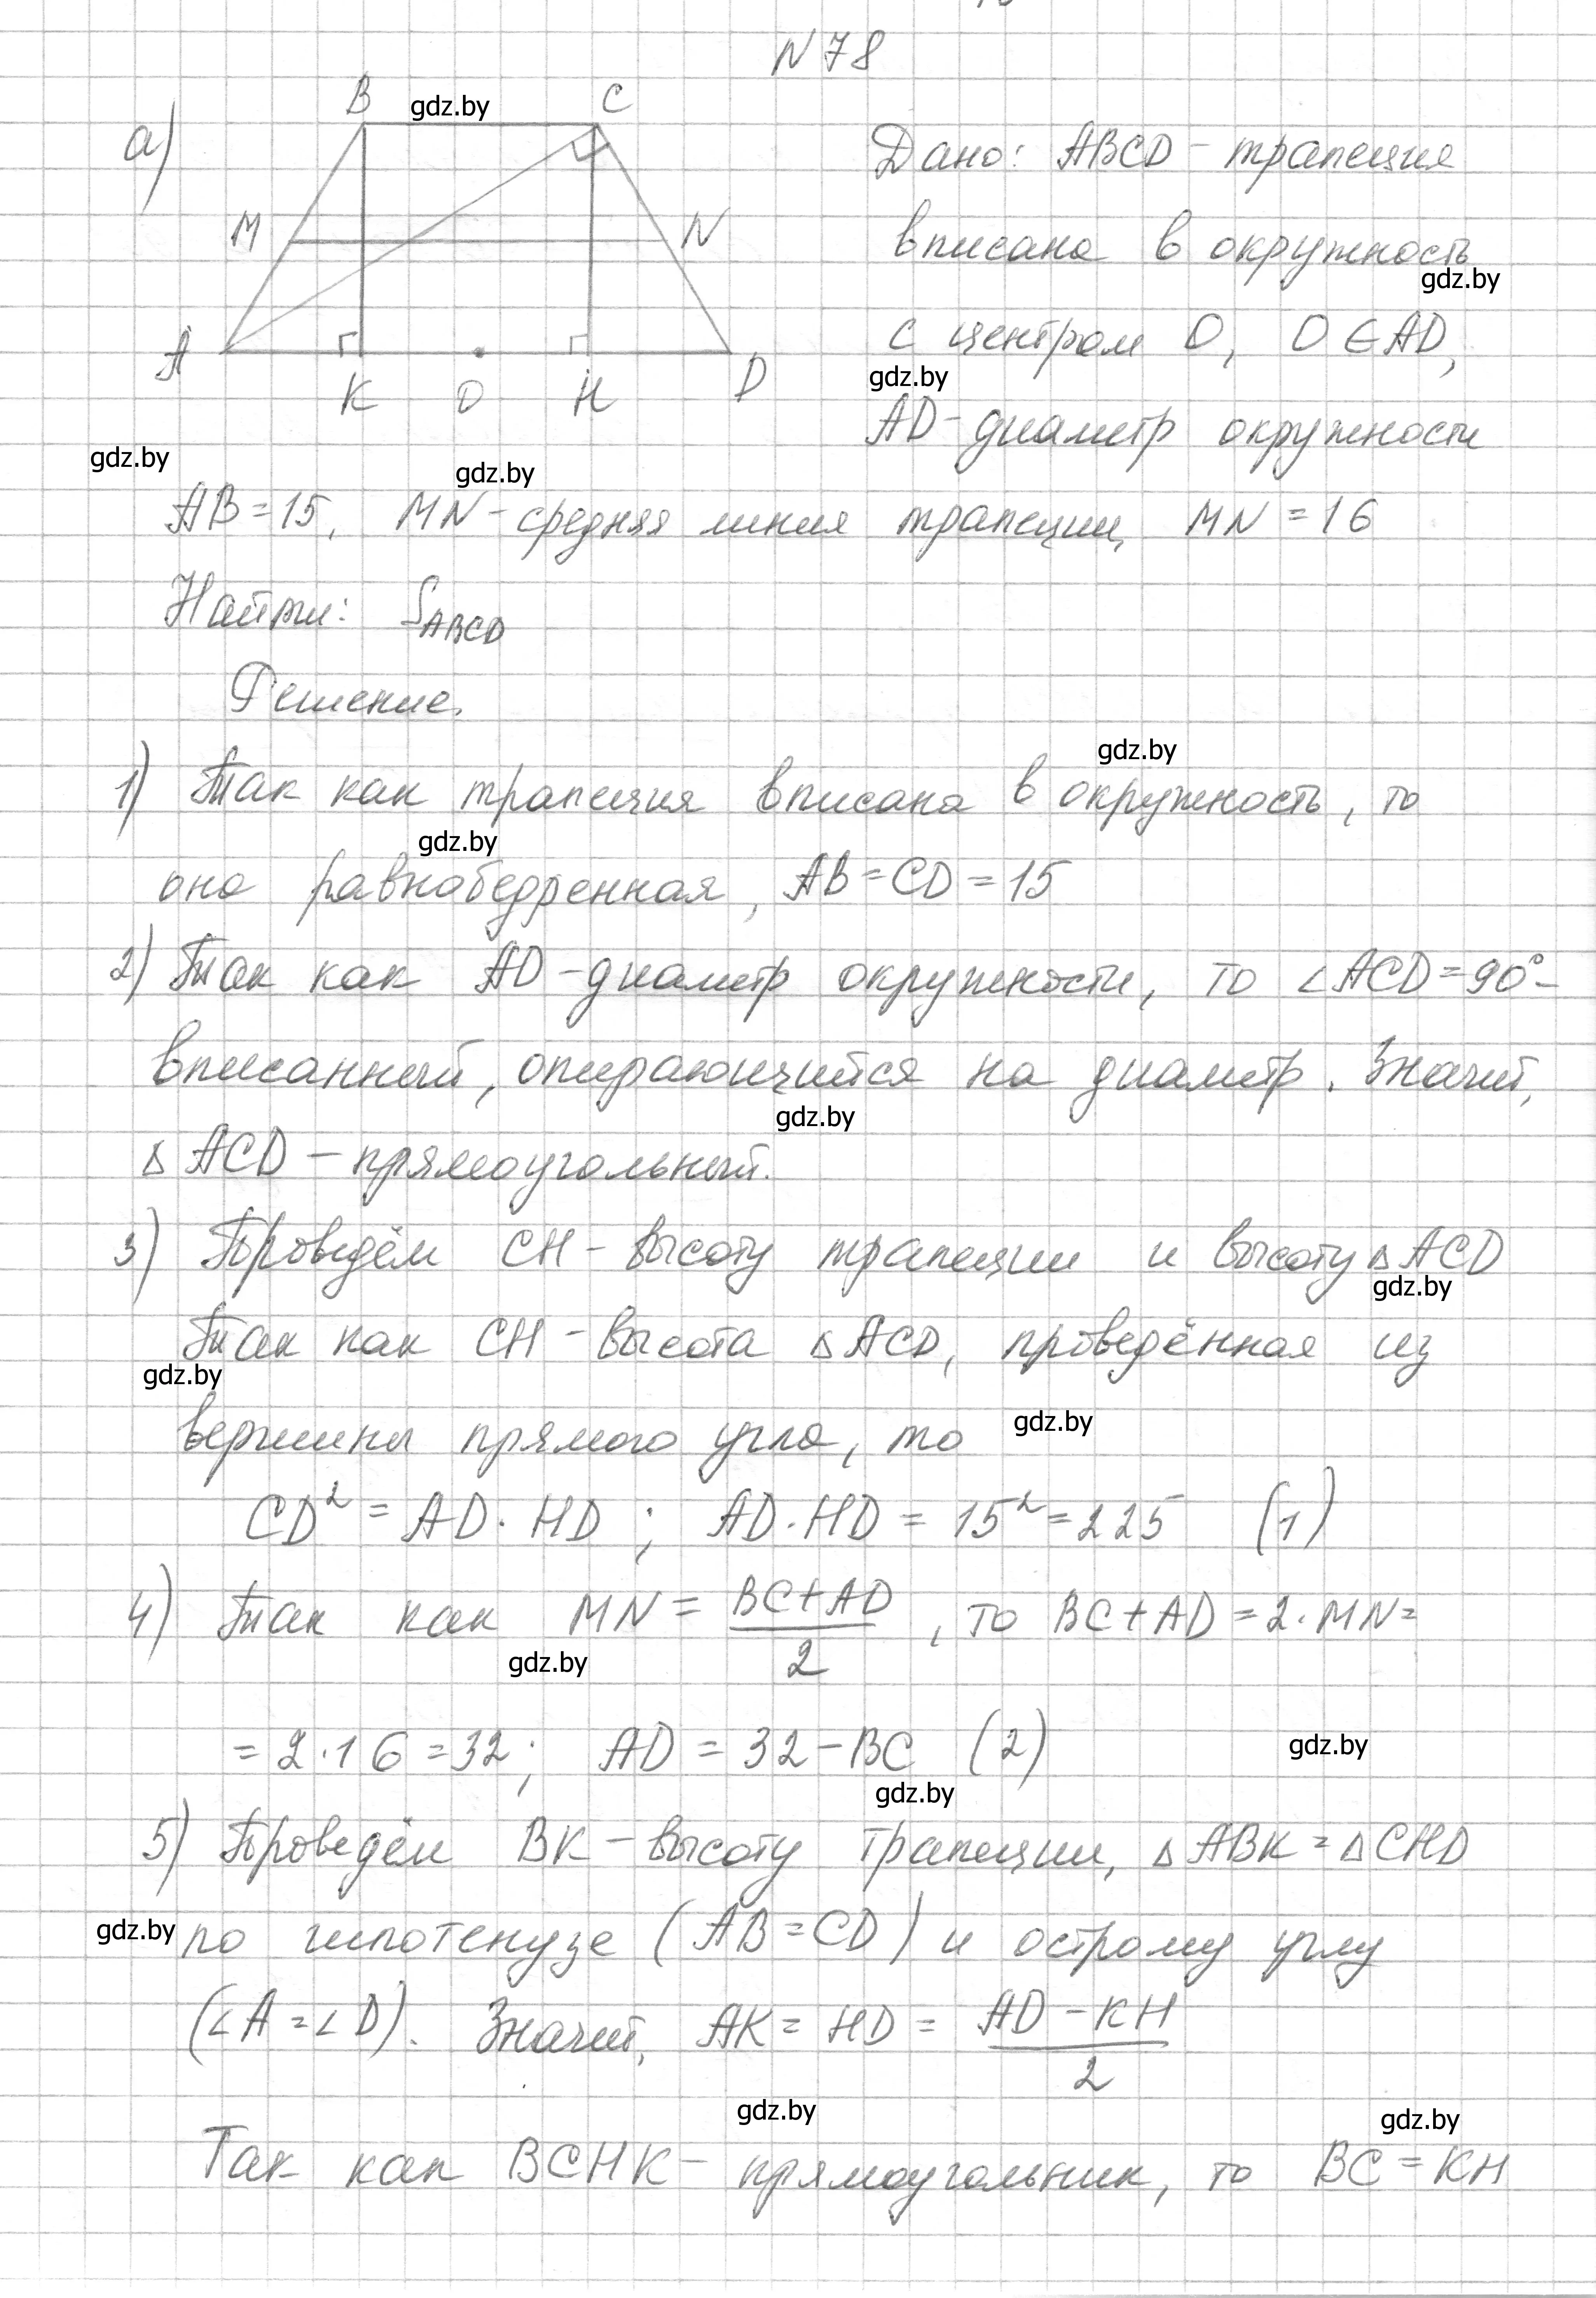 N 78
а)
B gdz.by C
M N
A K O H D
Дано: ABCD - трапеция
вписана в окружность
gdz.by
с центром O, O ∈ AD,
gdz.by
AD - диаметр окружности
gdz.by gdz.by
AB = 15, MN - средняя линия трапеции, MN = 16
Найти: S_ABCD
Решение.
gdz.by
1) Так как трапеция вписана в окружность, то
gdz.by
она равнобедренная, AB = CD = 15
2) Так как AD - диаметр окружности, то ∠ACD = 90° -
вписанный, опирающийся на диаметр. Значит,
gdz.by
△ ACD - прямоугольный.
3) Проведём CH - высоту трапеции и высоту △ ACD
gdz.by
Так как CH - высота △ ACD, проведённая из
gdz.by
вершины прямого угла, то gdz.by
CD² = AD · HD ; AD · HD = 15² = 225 (1)
4) Так как MN = (BC + AD)/2, то BC + AD = 2 · MN =
gdz.by
= 2 · 16 = 32; AD = 32 - BC (2) gdz.by
gdz.by
5) Проведём BK - высоту трапеции, △ ABK = △ CHD
gdz.by по гипотенузе (AB = CD) и острому углу
(∠A = ∠D). Значит, AK = HD = (AD - KH)/2
gdz.by gdz.by
Так как BCHK - прямоугольник, то BC = KH